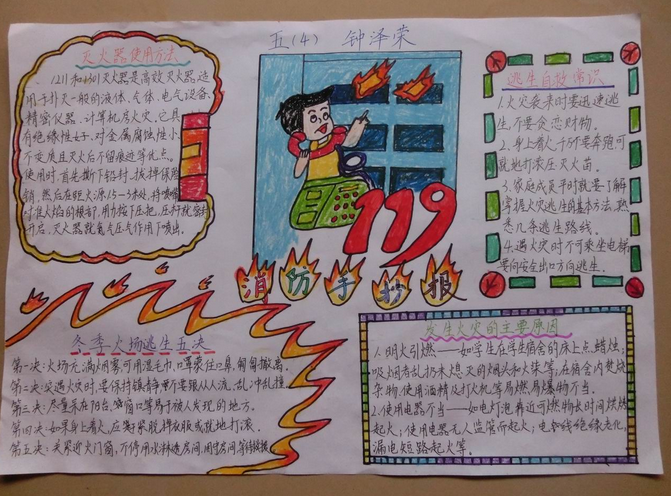 五（4） 钟泽荣
灭火器使用方法
1211和灭火器是高效灭火器,适
用于扑灭一般的液体、气体、电气设备、
精密仪器、计算机房火灾,它具
有绝缘性好,对金属腐蚀性小,
不变质且灭火后不留痕迹等优点。
使用时,首先撕下铅封,拔掉保险
销,然后在距火源1.5—3米处,将喷嘴
对准火焰的根部,用力按下压把,压杆就
开启,灭火器就氮气压气作用下喷出。
119
消防手抄报
逃生自救常识
1.火灾袭来时要迅速逃
生,不要贪恋财物。
2.身上着火,千万不要奔跑可
就地打滚压灭火苗。
3.家庭成员平时就要了解
掌握火灾逃生的基本方法,熟
悉几条逃生路线。
4.遇火灾时不可乘坐电梯
要向安全出口方向逃生。
冬季火场逃生五决
第一决:火场烟雾可用湿毛巾、口罩捂住口鼻,匍匐撤离。
第二决:突遇火灾时,要保持镇静,不要跟从人流、乱冲乱撞。
第三决:尽量呆在阳台、窗口等易于被人发现的地方。
第四决:如果身上着火,应脱掉衣服或就地打滚。
第五决:关紧近火门窗,不停用水淋透房间,固守房间等待救援。
发生火灾的主要原因
1.明火引燃——如学生在学生宿舍的床上点蜡烛;
吸烟者乱扔未熄灭的烟头和火柴等;在宿舍内焚烧
杂物;使用酒精及打火机等易燃易爆物不当。
2.使用电器不当——如电灯泡靠近可燃物长时间烘烤
起火;使用电器无人监管而起火;电线绝缘老化,
漏电短路起火等。